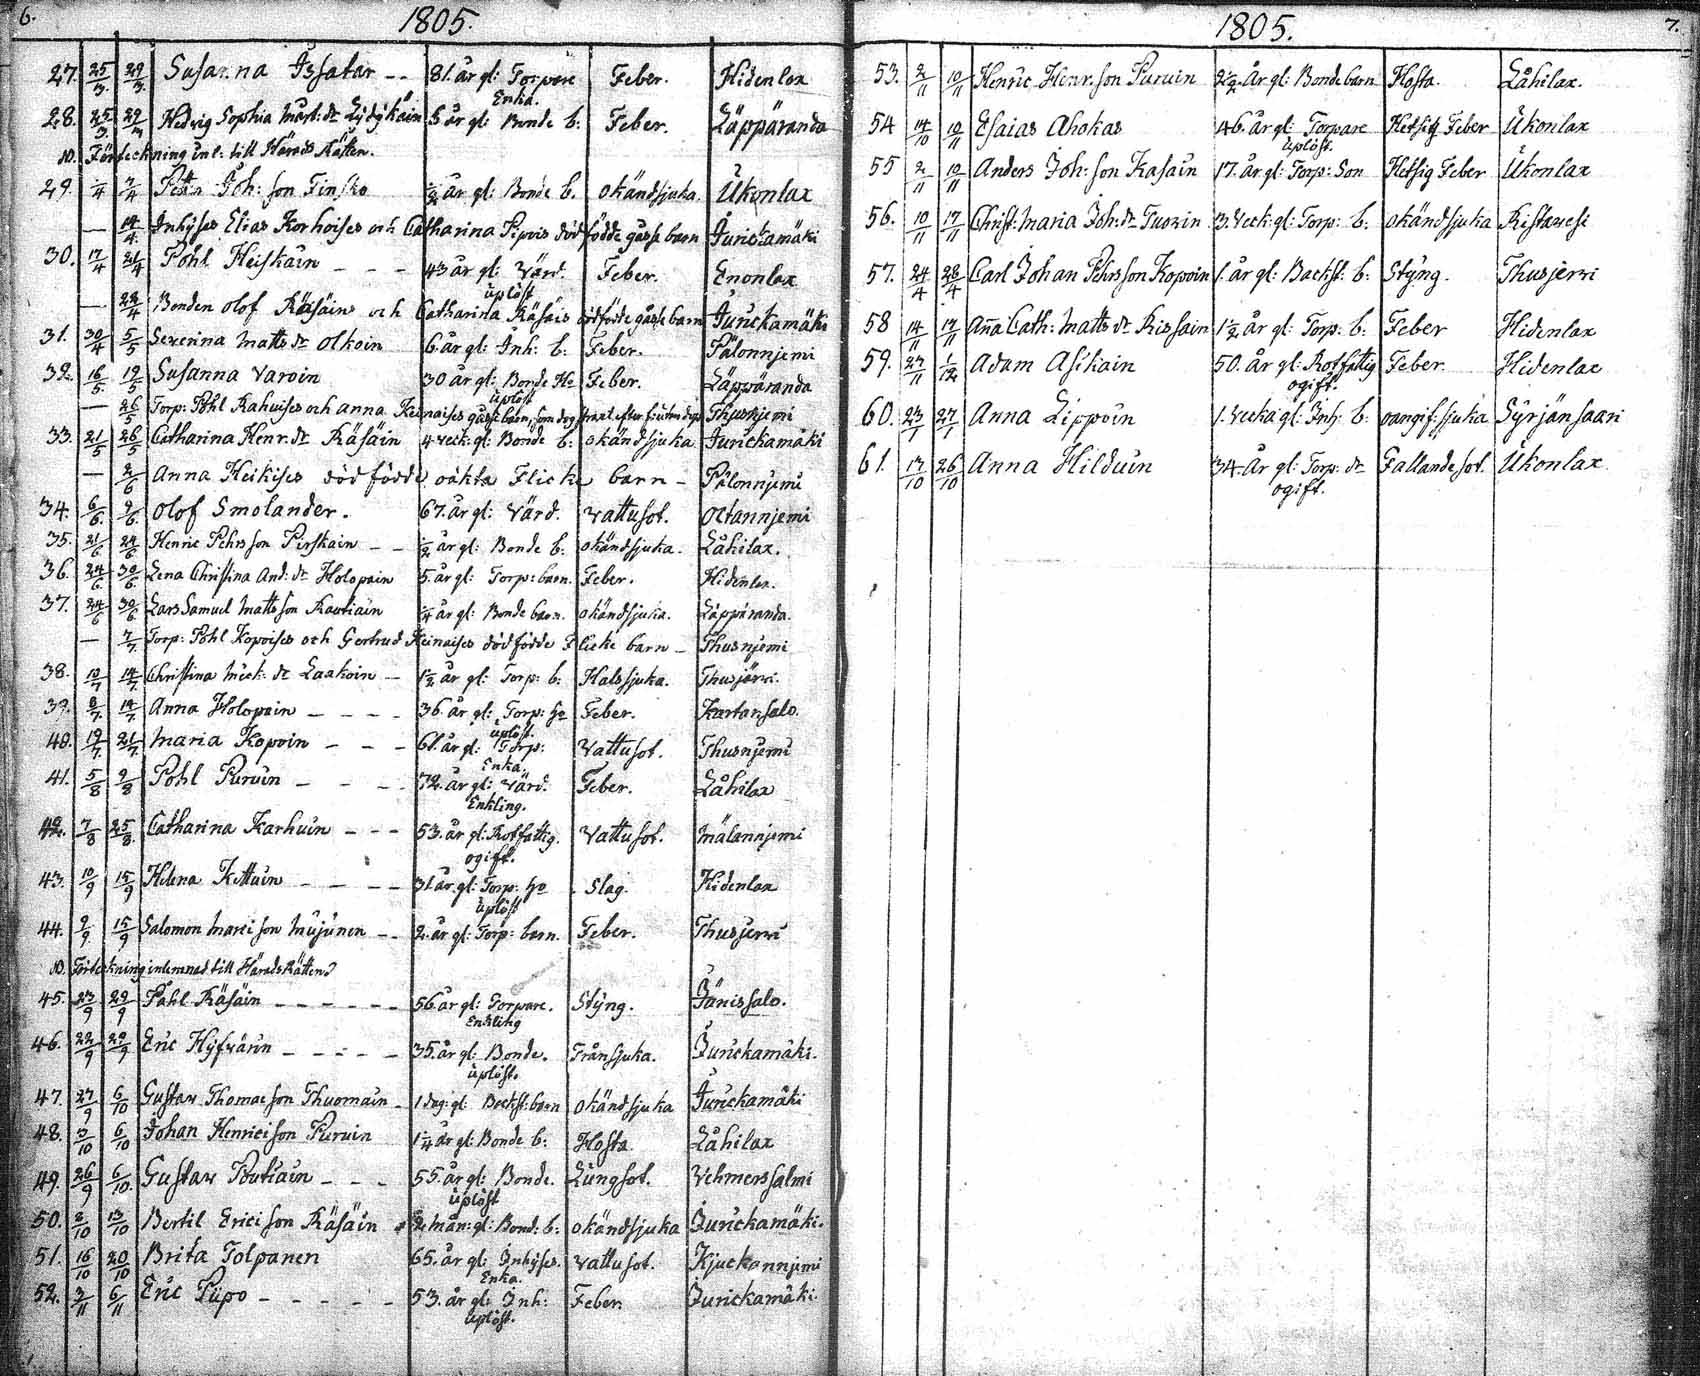 6.
1805.
27. 25/3. 29/3. Susanna Issatar -- 81. år gl: Torpare Enka. Feber. Hidenlax
28. 25/3 29/3 Hedvig Sophia Mårt: dr Lydykäin 5 år gl: Bonde b: Feber. Läppäranda
N. Förteckning inl: till Härads Rätten.
29. 1/4 7/4 Pettr Joh: son Finsko 1/2 år gl: Bonde b. okändsjuka. Ukonlax
— 14/4. Inhyses Elias Korhoises och Catharina Pipois dödfödde gåsse barn Jurickamäki
30. 17/4 21/4 Påhl Heiskain - - - 43 år gl: Värd. uplöst Feber. Enonlax
— 28/4 Bonden Olof Räsäins och Catharina Räsäis dödfödde gåsse barn Jurickamäki
31. 30/4 5/5 Severina Matts dr Olkoin 6. år gl: Inh: b: Feber. Pälonnjemi
32. 16/5. 19/5 Susanna Varoin 30 år gl: Bonde Ho uplöst Feber. Läppäranda
— 26/5 Torp: Påhl Rahuises och Anna Keinaises gåsse barn, som dog strax efter Thusnjemi
33. 21/5 26/5 Catharina Henr. dr Räsäin 4. veck: gl: Bonde b: okändsjuka Jurickamäki
— 2/6 Anna Heikises död födde oäkta Flicke barn - Pälonnjemi
34. 6/6. 9/6. Olof Smolander. 67. år gl: Värd. Vattusot. Octannjemi
35. 21/6 24/6 Henric Pehrs son Pirskain -- 1/2 år gl: Bonde b: okändsjuka. Låhilax.
36. 24/6. 30/6. Lena Christina And: dr Holopain 5. år gl: Torp: barn. Feber. Hidenlax.
37. 24/6 30/6 Lars Samuel Matts son Rautiain 1/4 år gl: Bonde barn. okändsjuka. Läppäranda.
— 7/7. Torp: Påhl Kopoises och Gertrud Heinaises dödfödde Flicke barn - Thusnjemi
38. 10/7 14/7. Christina Mick: dr Laakoin - 1 1/2 år gl: Torp: b: Halssjuka. Thusjärvi.
39. 8/7. 14/7. Anna Holopain - - - - 36. år gl: Torp: ho uplöst. Feber. Kartansalo.
40. 19/7 21/7. Maria Kopoin - - - 61. år gl: Torp: Enka. Vattusot. Thusnjemi
41. 5/8 9/8 Påhl Puruin - - - - 72. år gl: Värd. Enkling. Feber. Låhilax
42. 7/8 25/8. Catharina Karhuin - - - 53. år gl: Rotfattig. ogift. Vattusot. Mälannjemi
43. 10/9 15/9 Helena Kettuin - - - - 31. år gl: Torp: ho uplöst Slag. Hidenlax
44. 9/9 15/9 Salomon Marci son Mujunen -- 2. år gl: Torp: barn. Feber. Thusjervi
N. Förteckning inlemnad till Härads Rätten
45. 23/9 29/9 Påhl Räsäin - - - - - - 56. år gl: Torpare. Enkling Styng. Jänissalo.
46. 22/9 29/9 Eric Hyfvärin - - - - - 35. år gl: Bonde. uplöst. Trånsjuka. Jurickamäki.
47. 27/9 6/10 Gustav Thomae son Thuomain - 1 dag: gl: Backst: barn okändsjuka Jurickamäki
48. 3/10 6/10 Johan Henrici son Puruin 1 1/4 år gl: Bonde b: Hosta. Låhilax
49. 26/9 6/10. Gustav Poutiain - - - 55. år gl: Bonde. uplöst Lungsot. Vehmerssalmi
50. 8/10 13/10 Bertil Erici son Räsäin 2. mån: gl: Bond: b: okändsjuka Jurickamäki.
51. 16/10 20/10 Brita Tolpanen 65. år gl: Inhyses. Enka. Vattusot. Kjuckannjemi
52. 3/11 6/11 Eric Piipo - - - - - 53. år gl: Inh: uplöst. Feber. Jurickamäki.
1805.
7.
53. 2/11 10/11 Henric Henr. son Puruin 2 1/2 år gl: Bonde barn Hosta. Låhilax.
54 14/10 10/11 Esaias Ahokas 46. år gl: Torpare uplöst. Hetsig Feber Ukonlax
55 2/11 10/11 Anders Joh: son Kasain 17. år gl: Torp: Son Hetsig Feber Ukonlax
56. 10/11 17/11 Christ: Maria Joh: dr Tuovin 3. veck: gl: Torp: b: okändsjuka Ristavesi
57. 24/4 28/4 Carl Johan Pehrsson Kopoin 1. år gl: Backst: b: Styng. Thusjervi
58 14/11 17/11 Anna Cath: Matts dr Rissain 1 1/2 år gl: Torp: b: Feber Hidenlax
59. 27/11 1/12 Adam Asikain 50. år gl: Rotfattig ogift. Feber. Hidenlax
60. 23/1 27/1 Anna Lippoin 1. vecka gl: Inh: b: oangif. sjuka Syrjänsaari
61. 13/10 26/10 Anna Hilduin 34. år gl: Torp: dr ogift. Fallandesot. Ukonlax.